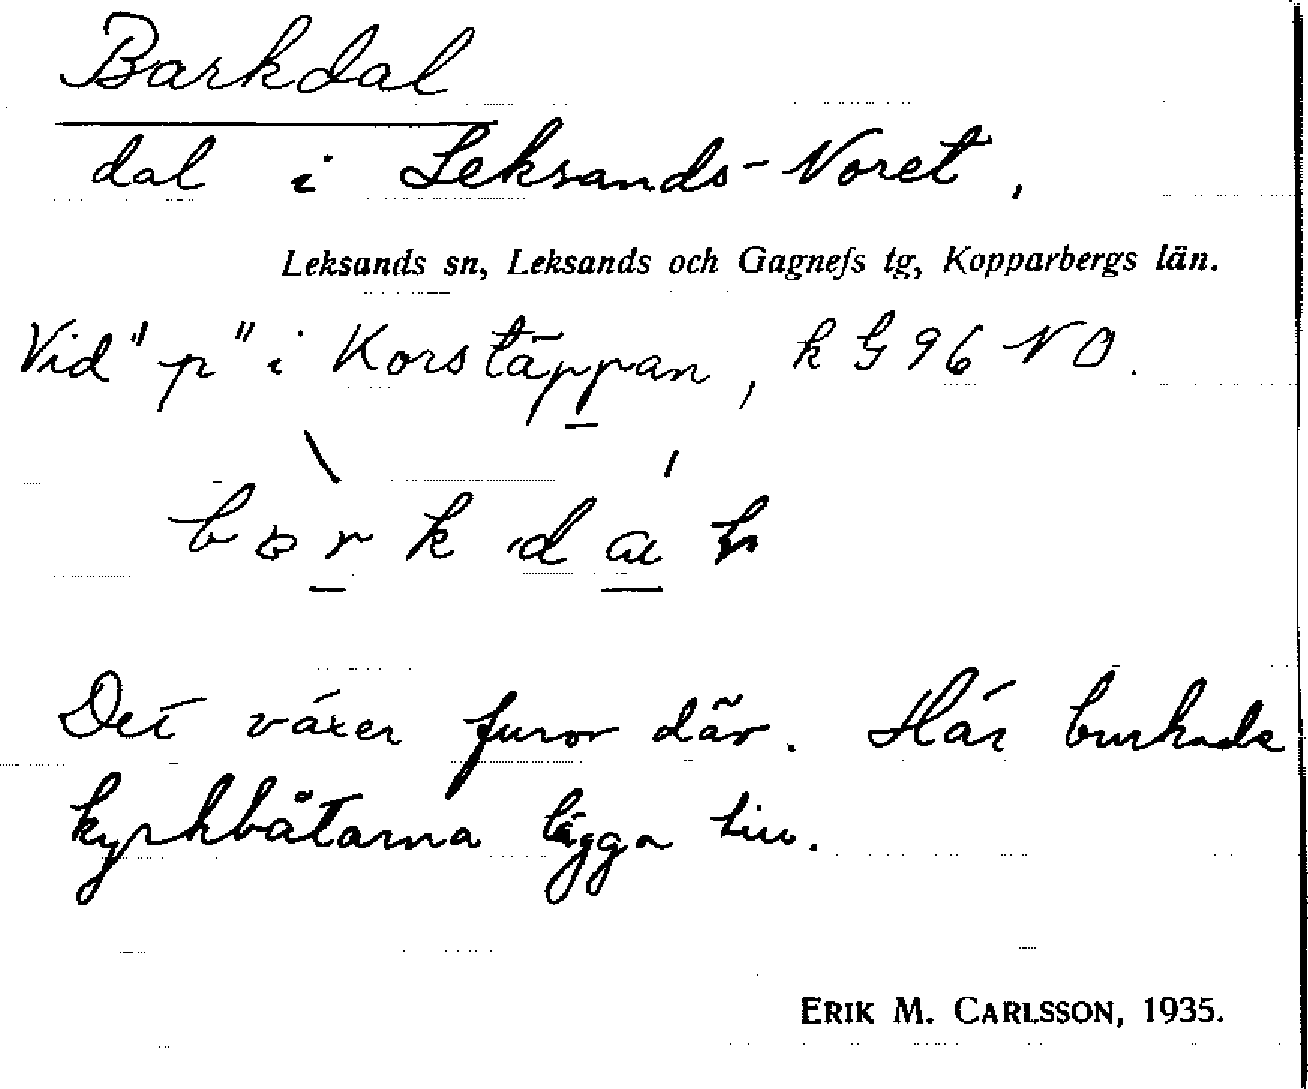 Barkdal
dal i Leksands-Noret.
Leksands sn, Leksands och Gagnefs tg, Kopparbergs län.
Vid "p" i Korstäppan, k G 96 NO.
Det växer furor där. Här brukade
kyrkbåtarna lägga till.
ERIK M. CARLSSON, 1935.